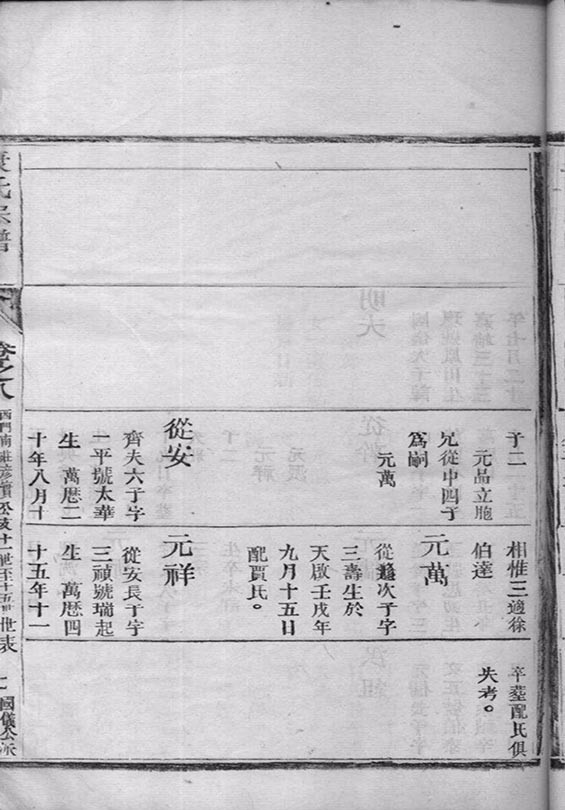 子二
元品立胞
兄從中四子
爲嗣
元萬
從安
齊夫六子字
一平號太華
生 萬厯二
十年八月十
相惟三適徐
伯達
元萬
從遙次子字
三壽生於
天啟壬戌年
九月十五日
配賈氏。
元祥
從安長子字
三禎號瑞起
生 萬厯四
十五年十一
卒塟配氏俱
失考。
氏宗譜
卷之八
世表
國儀公派